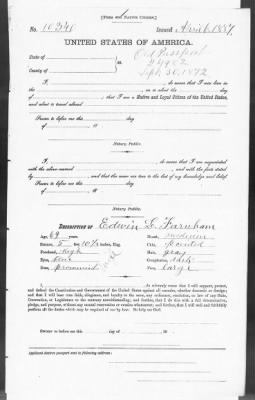 [FORM FOR NATIVE CITIZEN.]
No. 10340 Issued April 1887
UNITED STATES OF AMERICA.
State of Old Passport
24982
County of Sept 30, 1872
I, do swear that I was born in
the , on or about the day
of , that I am a Native and Loyal Citizen of the United States,
and about to travel abroad.
Sworn to before me this day
of , 18
Notary Public.
I, do swear that I am acquainted
with the above-named , and with the facts stated
by , and that the same are true to the best of my knowledge and belief.
Sworn to before me this day
of , 18
Notary Public.
DESCRIPTION OF Edwin L. Farnham
Age, 69 years. Mouth, medium
Stature, 5 feet 10 1/2 inches, Eng. Chin, pointed
Forehead, high Hair, gray
Eyes, blue Complexion,
Nose, prominent Face, large
I, do solemnly swear that I will support, protect,
and defend the Constitution and Government of the United States against all enemies, whether domestic or foreign;
and that I will bear true faith, allegiance, and loyalty to the same, any ordinance, resolution, or law of any State,
Convention, or Legislature to the contrary notwithstanding; and further, that I do this with a full determination,
pledge, and purpose, without any mental reservation or evasion whatsoever; and further, that I will well and faithfully
perform all the duties which may be required of me by law. So help me God.
Sworn to before me this day
of , 18
Notary Public.
Applicant desires passport sent to following address: